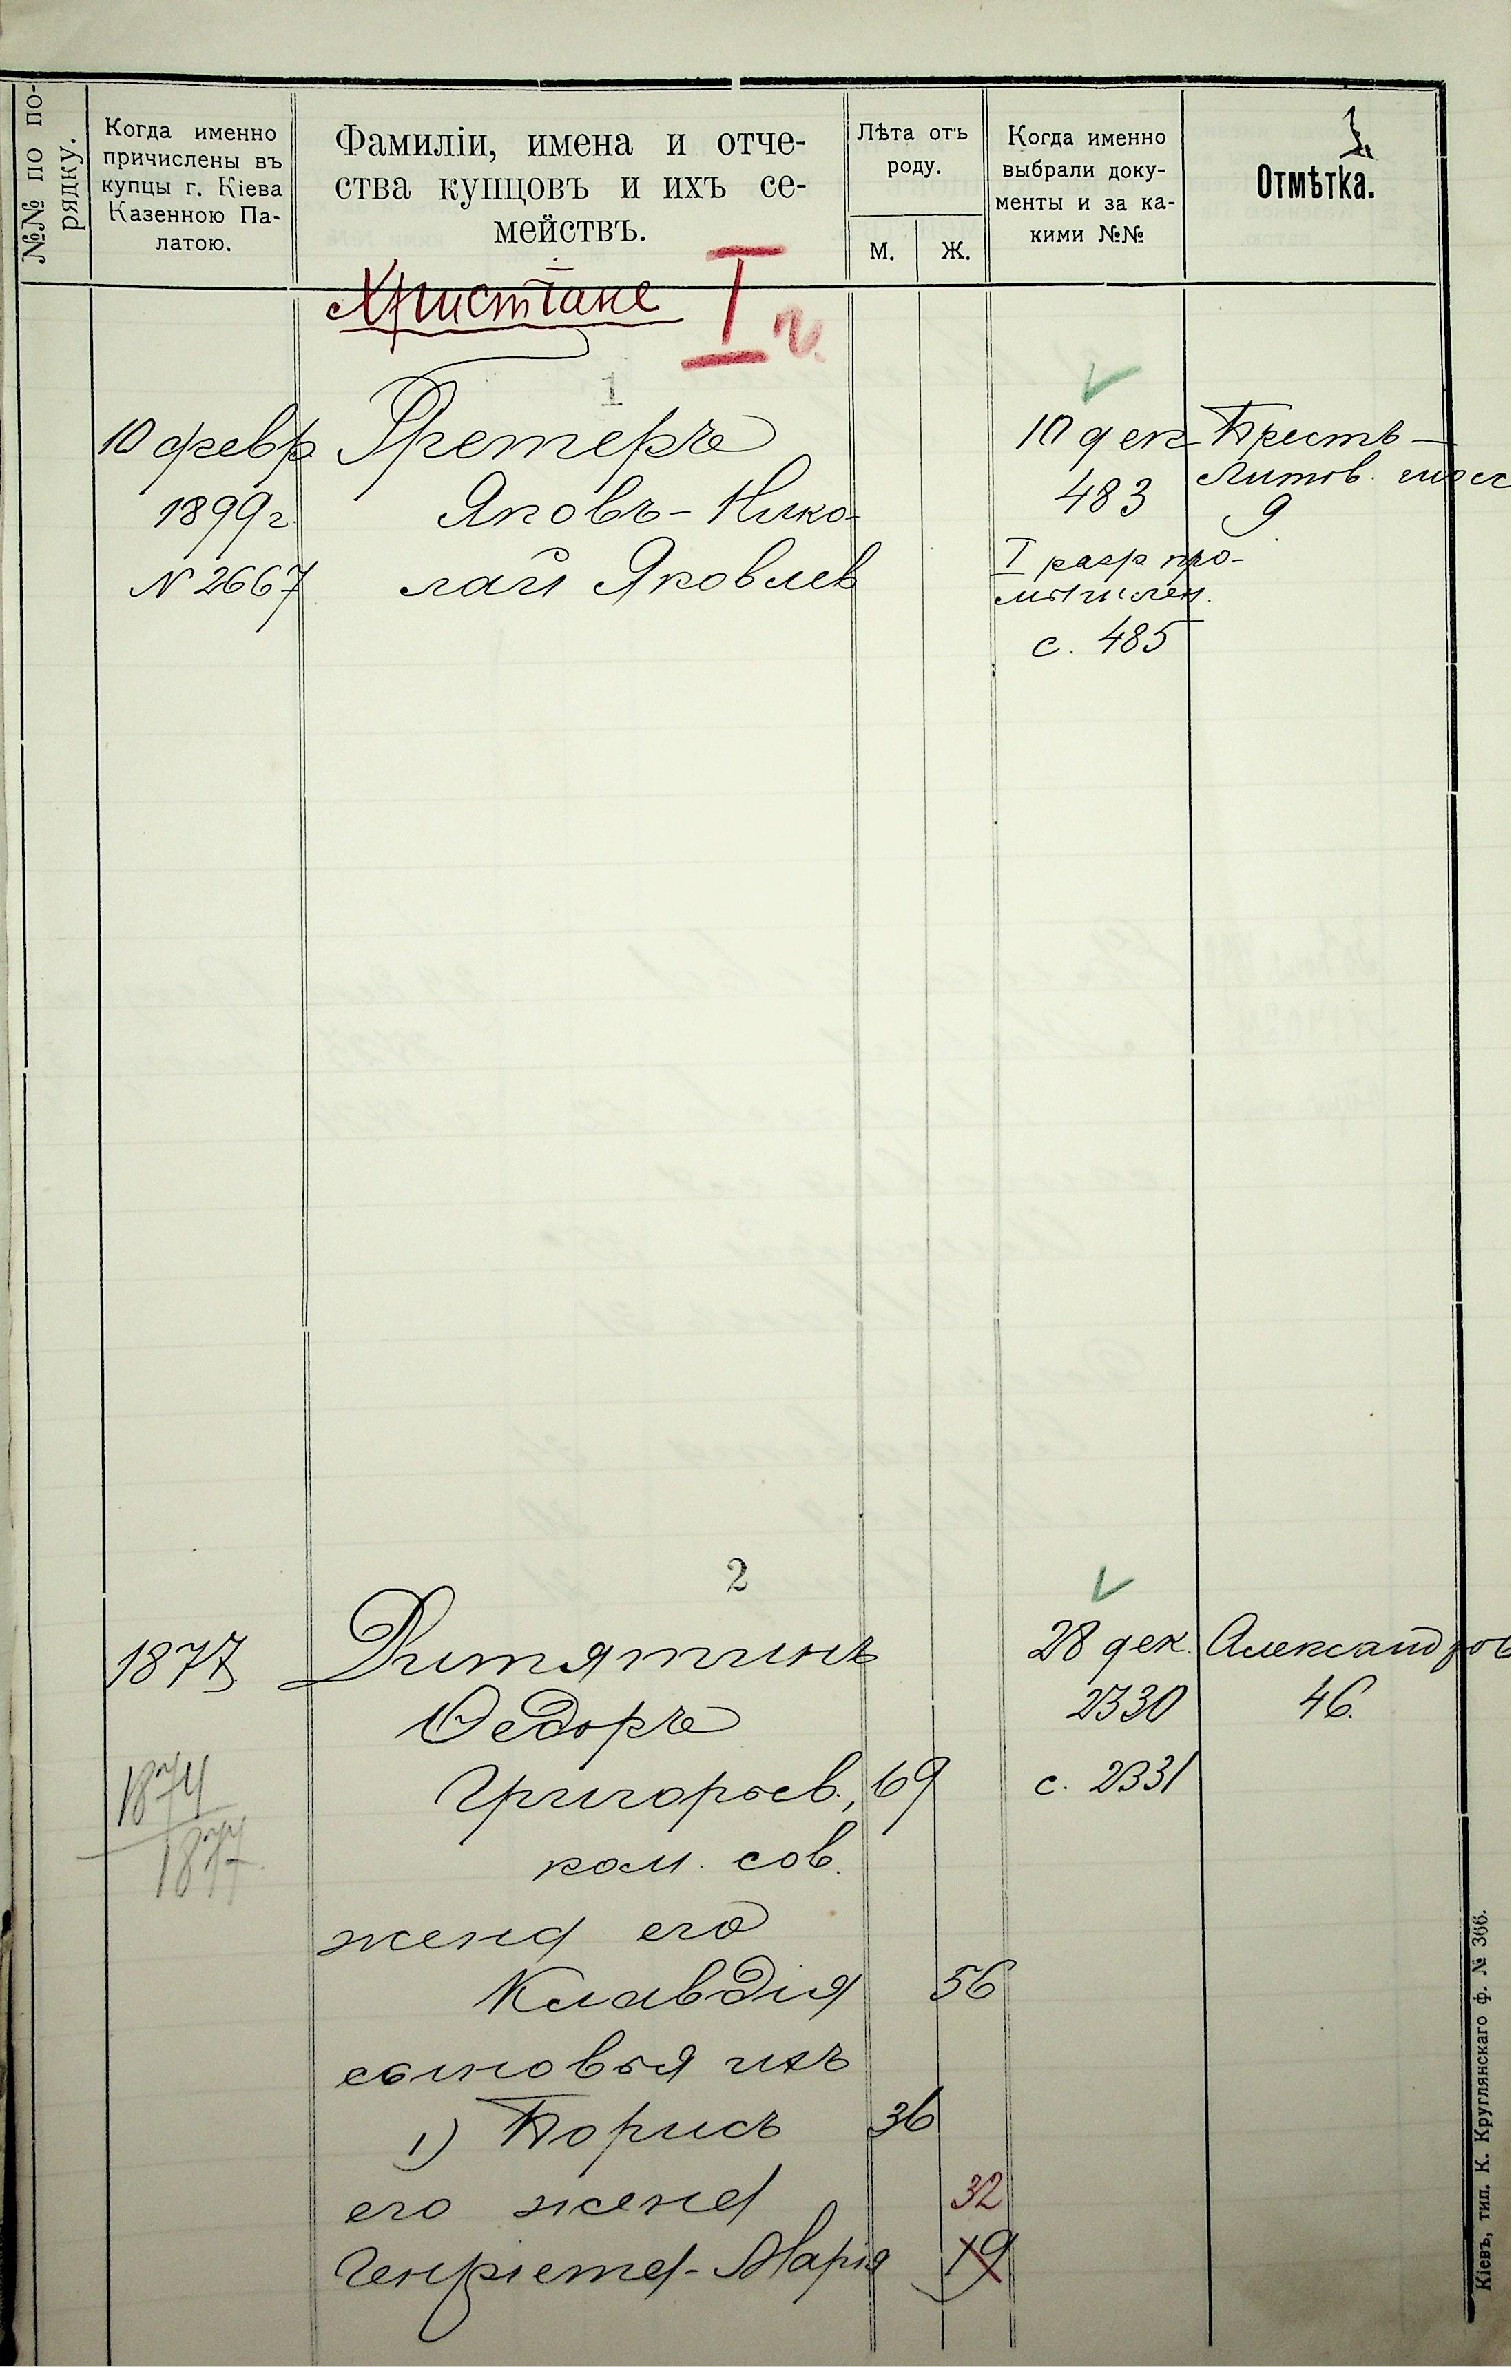 №№ по по-
рядку.
Когда именно
причислены въ
купцы г. Кіева
Казенною Па-
латою.
Фамиліи, имена и отче-
ства купцовъ и ихъ се-
мействъ.
Лѣта отъ
роду.
М.
Ж.
Когда именно
выбрали доку-
менты и за ка-
кими №№
1
Отмѣтка.
Христіане I г.
1
10 февр
1899 г.
N 2667
Гретеръ
Яковъ-Нико-
лай Яковлев
10 дек
483
I разр про-
мышлен.
с. 485
Брестъ-
Литов. шосс
9
2
1877
1874
1877.
Дитятинъ
Ѳедоръ
Григорьев., 69
ком. сов.
жена его
Клавдія 56
сыновья ихъ
1) Борисъ 36
его жена 32
Генріета-Марія 19
28 дек.
2330
с. 2331
Александров
46.
Кіевъ, тип. К. Круглянскаго ф. № 366.